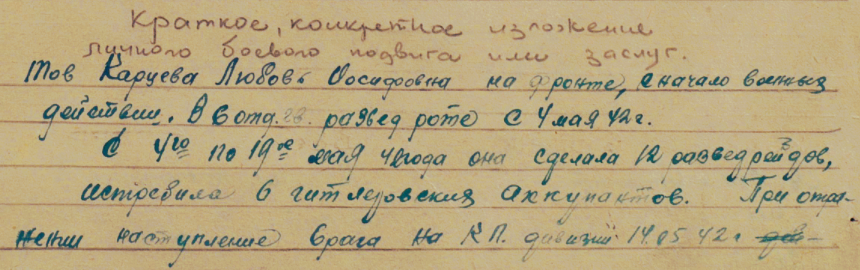 Краткое, конкретное изложение
личного боевого подвига или заслуг.
Тов Карцева Любовь Иосифовна на фронте, с начало военных
действии. В 6 отд. гв. развед роте с 4 мая 42 г.
С 4го по 19ое мая 42года она сделала 12 разведрейдов,
истребила 6 гитлеровских аккупантов. При отра-
жении наступление врага на К.П. дивизии 14.05.42 г